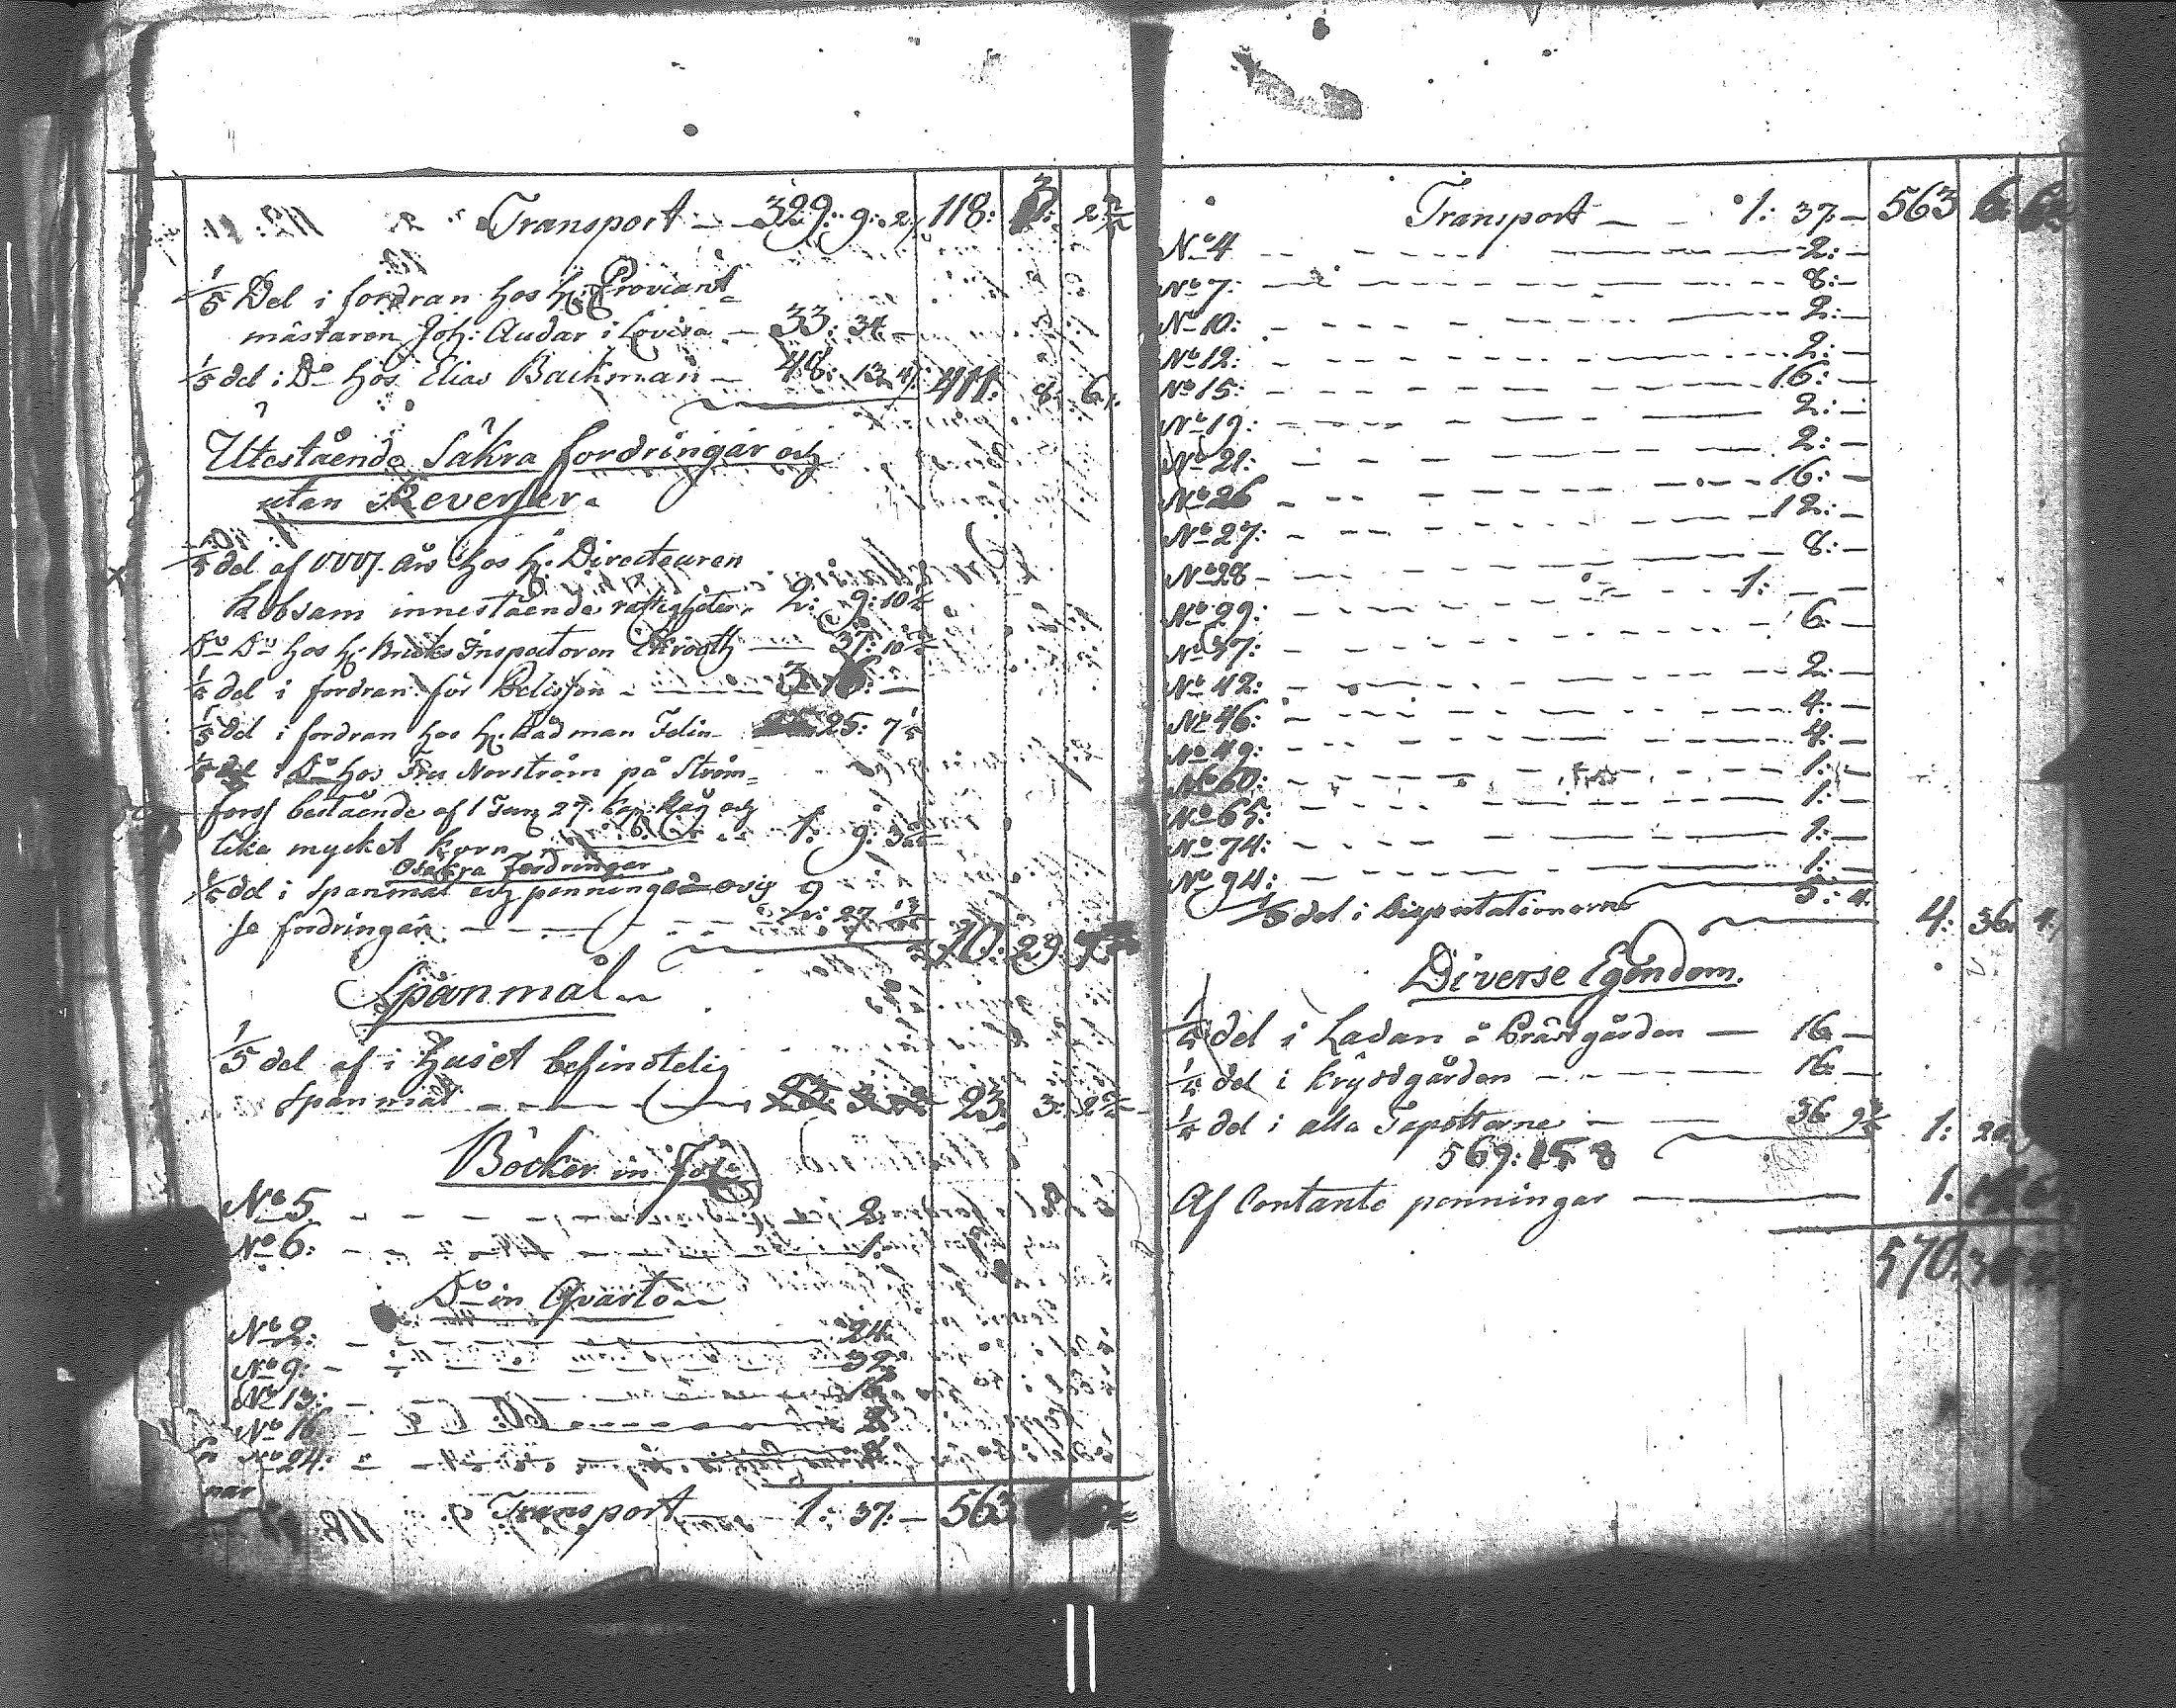 Transport — 329: 9: 2 118: 3: 2
1/5 Del i fordran hos H: Proviant-
mästaren Joh: Audar i Lovisa — 33: 34 —
1/5 del i Do hos Elias Backman — 48: 13 4 411: 8: 6
Utestående Säkra fordringar och
utan Reverser
1/5 del af års hos H: Directeuren
Kobsam innestående rättigheter 2: 9: 10
Do Do hos H: Bruks Inspectoren Ekrooth — 37: 10
1/5 del i fordran för 3
1/5 del i fordran hos H: Rådman Felin 25: 7
1/5 del i Do hos Fru Norström på Ström=
fors bestående af 1 Tun 27 kap: Råg och
lika mycket korn 1: 9: 3
Osäkra fordringar
1/5 del i Spanmål och penninge ovis
se fordringar 2: 27 10: 29:
Spanmål
1/5 del af i Huset befindtelig
Spanmål 23: 3: 2
Böcker in Fol:
No 5 — 2
No 6: — 1.
Do in Qvarto
No 2: — 24:
No 9: — 32
No 13: — 16
No 16 — 8
No 24:
Transport — 1: 37: — 563
Transport — 1: 37: — 563 6:
No 4 — 2: —
No 7: — 8: —
No 10: — 2: —
No 12: — 2: —
No 15: — 16: —
No 19: — 2: —
No 21: — 2: —
No 26 — 16: —
No 27: — 12: —
No 28 — 8: —
No 29: — 1: —
No 37: — 6: —
No 42: — 2: —
No 46: — 4: —
No 49: — 4: —
No 60: — 1: —
No 65: — 1: —
No 74: — 1: —
No 94: — 1: —
1/5 del i Disputationerne 5: 4. 4: 36: 4
Diverse Egendom.
1/5 del i Ladan å Prästgården — 16 —
1/5 del i Krydgården — 16 —
1/5 del i alla Tapetterne — 36 9 1: 20
569: 15 8
Af Contante penningar — 1.
570: